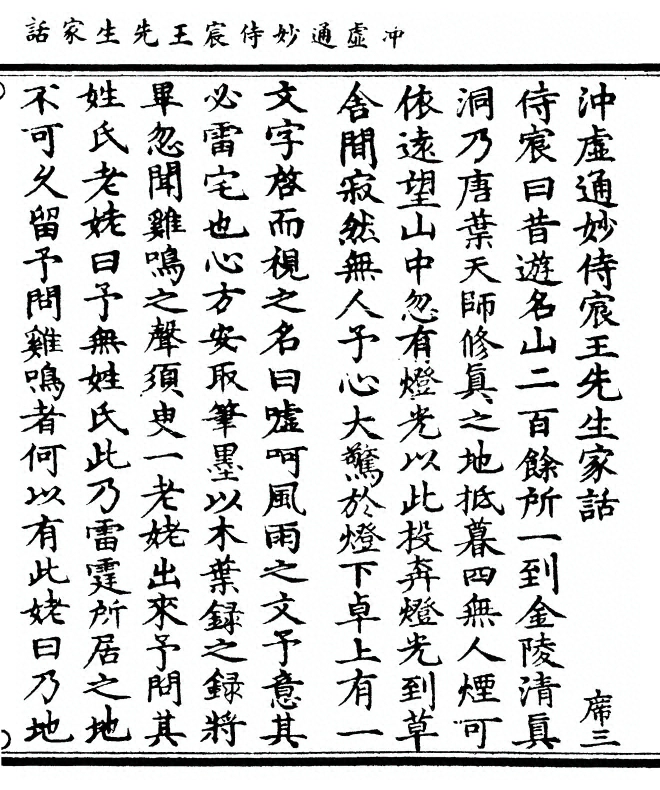 冲虛通妙侍宸王先生家話
沖虛通妙侍宸王先生家話
席三
侍宸曰昔遊名山二百餘所一到金陵清眞
洞乃唐葉天師修眞之地抵暮四無人煙可
依遠望山中忽有燈光以此投奔燈光到草
舍間寂然無人予心大驚於燈下卓上有一
文字啓而視之名曰噓呵風雨之文予意其
必雷宅也心方安取筆墨以木葉録之録將
畢忽聞雞鳴之聲須臾一老姥出來予問其
姓氏老姥曰予無姓氏此乃雷霆所居之地
不可久留予問雞鳴者何以有此姥曰乃地